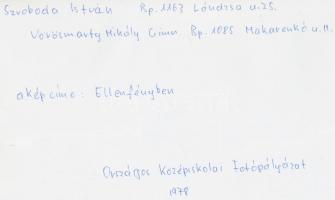 Szvoboda István Bp. 1163 Lándzsa u. 25.
Vörösmarty Mihály Gimn. Bp. 1085 Makarenkó u.
a kép címe: Ellenfényben
Országos Középiskolai Fotópályázat
1978